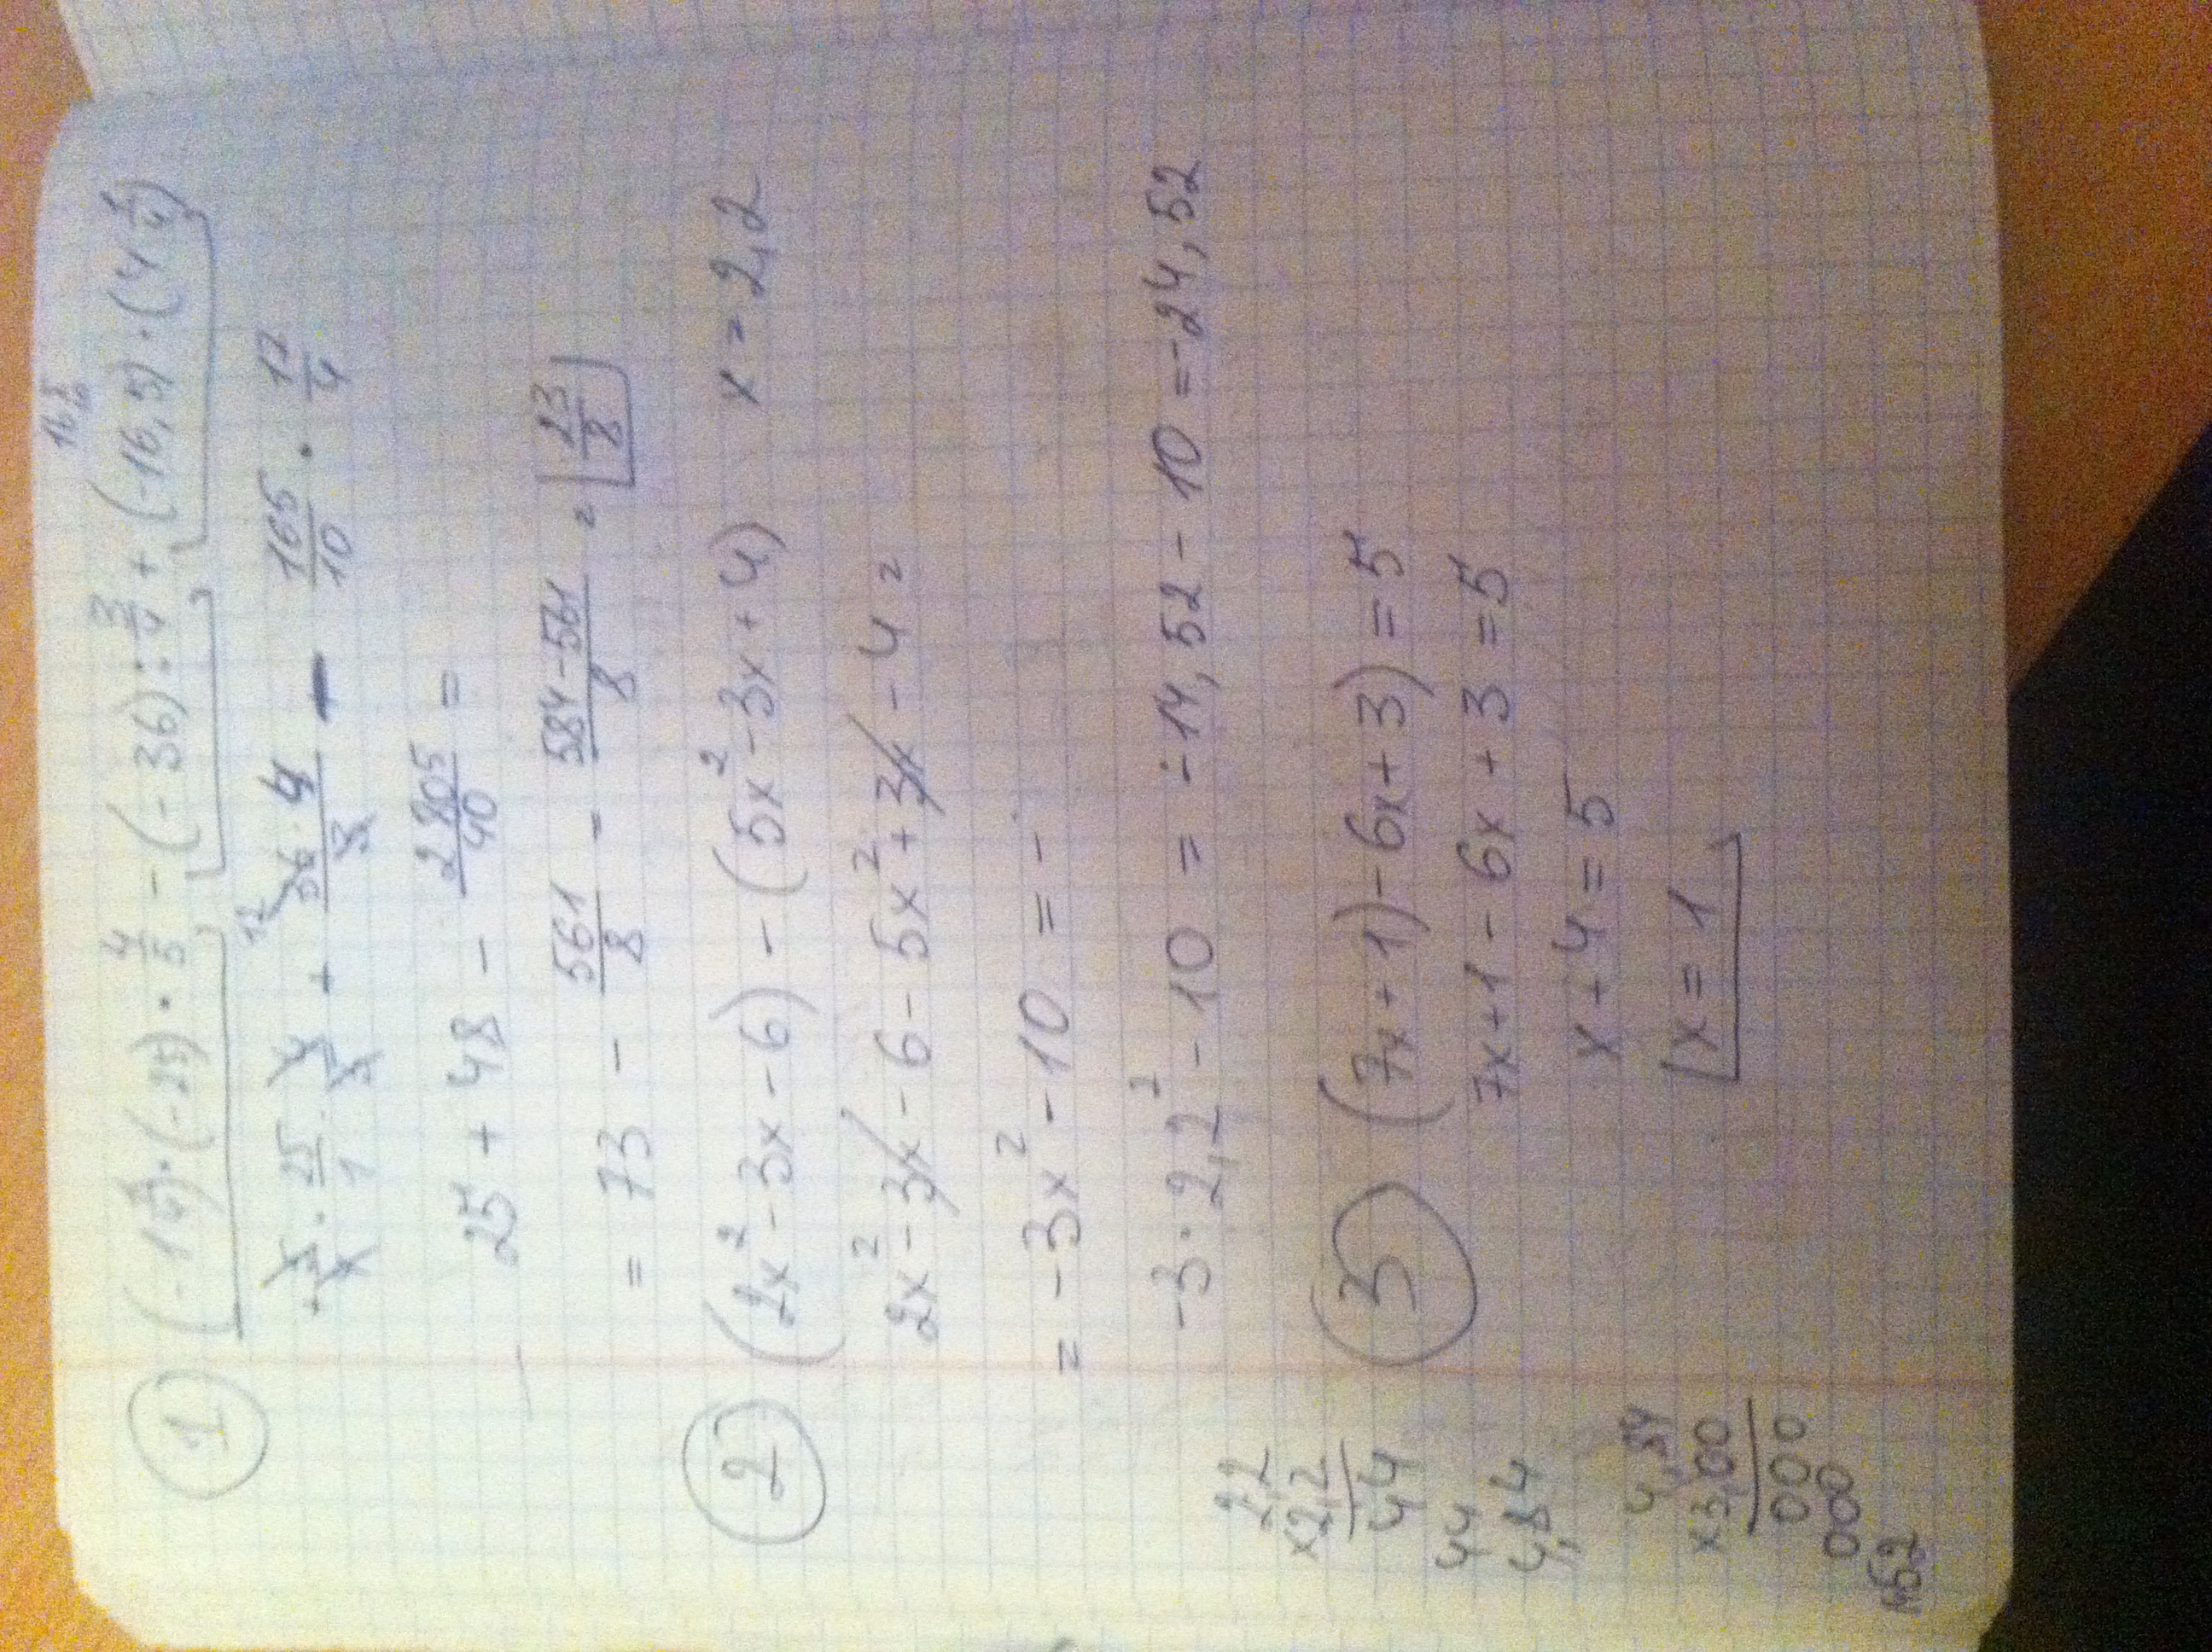 16 5/10
① (-1 1/4)·(-25)·4/5 - (-36):3/4 + (-16,5)·(4 1/4)
12
+ 5/4 · 25/1 · 4/5 + 36·4/3 - 165/10 · 17/4
25 + 48 - 2805/40 =
= 73 - 561/8 = 584-561/8 = 23/8
② (2x² - 3x - 6) - (5x² - 3x + 4) x = 2,2
2x² - 3x - 6 - 5x² + 3x - 4 =
= -3x² - 10 = -
-3·2,2² - 10 = -14,52 - 10 = -24,52
③ (7x+1) - 6x + 3) = 5
7x+1 - 6x + 3 = 5
x + 4 = 5
x = 1
2,2
x2,2
44
44
4,84
4,84
x3,00
000
000
1452